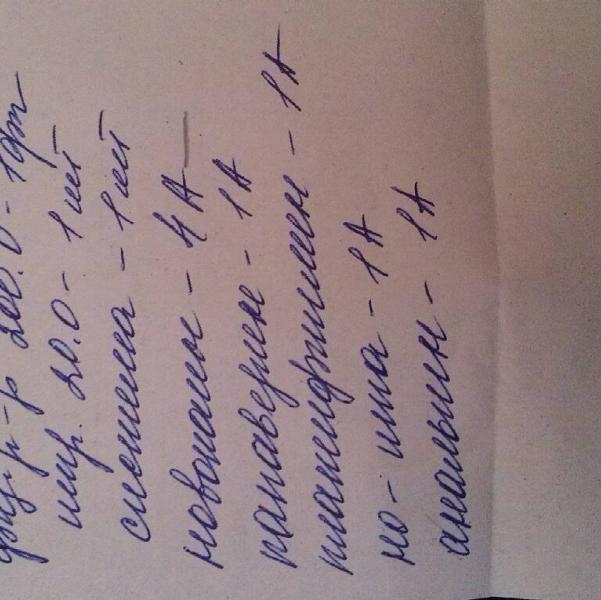 физ. р-р 200.0 - 1фл
шпр. 20.0 - 1 шт
система - 1 шт
новокаин - 4 А
папаверин - 1А
платифиллин - 1А
но-шпа - 1А
анальгин - 1А